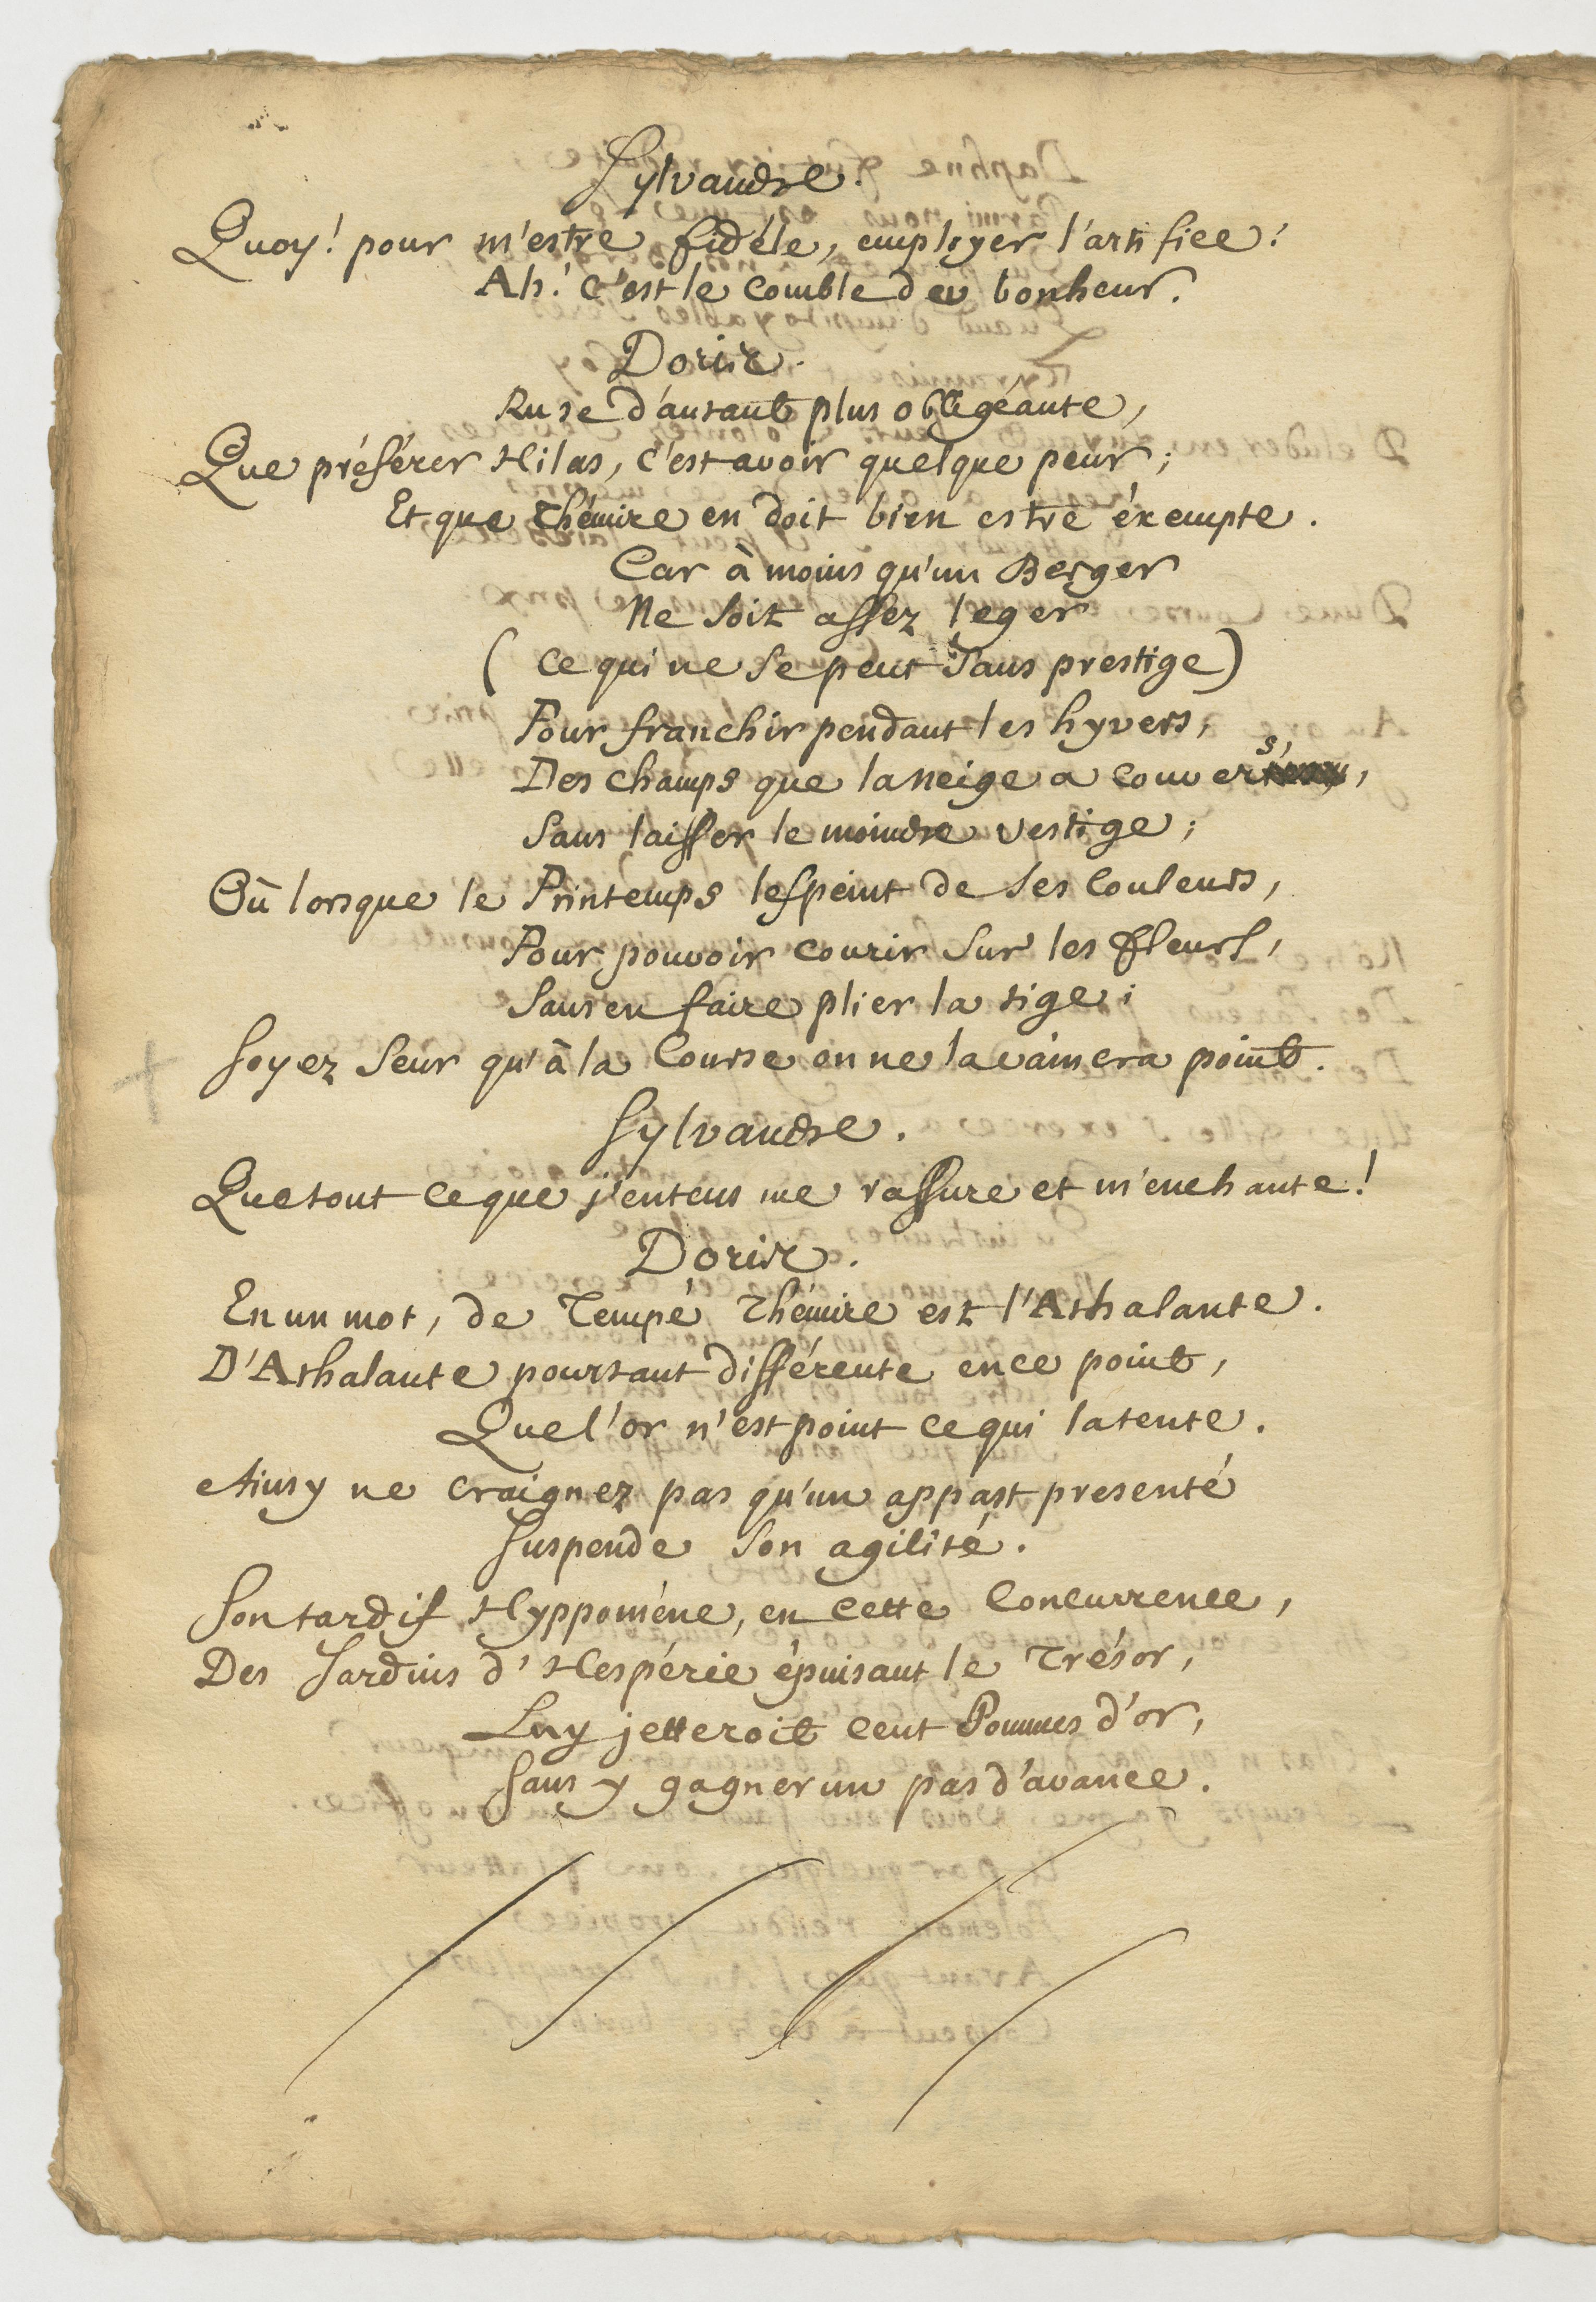 Sylvandre.
Quoy! pour m'estre fidéle, employer l'artifice!
Ah! c'est le comble du bonheur.
Doris.
Ruse d'autant plus obligéante,
Que préférer Hilas, c'est avoir quelque peur;
Et que Thémire en doit bien estre éxempte.
Car à moins qu'un Berger
Ne soit assez leger
(ce qui ne se peut sans prestige)
Pour franchir pendant les hyvers,
Des champs que la neige a couvers,
Sans laisser le moindre vestige;
Où lorsque le Printemps les peint de ses couleurs,
Pour pouvoir courir sur les fleurs,
Sans en faire plier la tige;
Soyez seur qu'à la Course on ne la vaincra point.
Sylvandre.
Que tout ce que j'entens me rassure et m'enchante!
Doris.
En un mot, de Tempé Thémire est l'Athalante.
D'Athalante pourtant différente en ce point,
Que l'or n'est point ce qui la tente.
Ainsy ne craignez pas qu'un appast presenté
Suspende son agilité.
Son tardif Hyppoméne, en cette concurrence,
Des Jardins d'Hespérie épuisant le Trésor,
Luy jetteroit cent Pommes d'or,
Sans y gagner un pas d'avance.